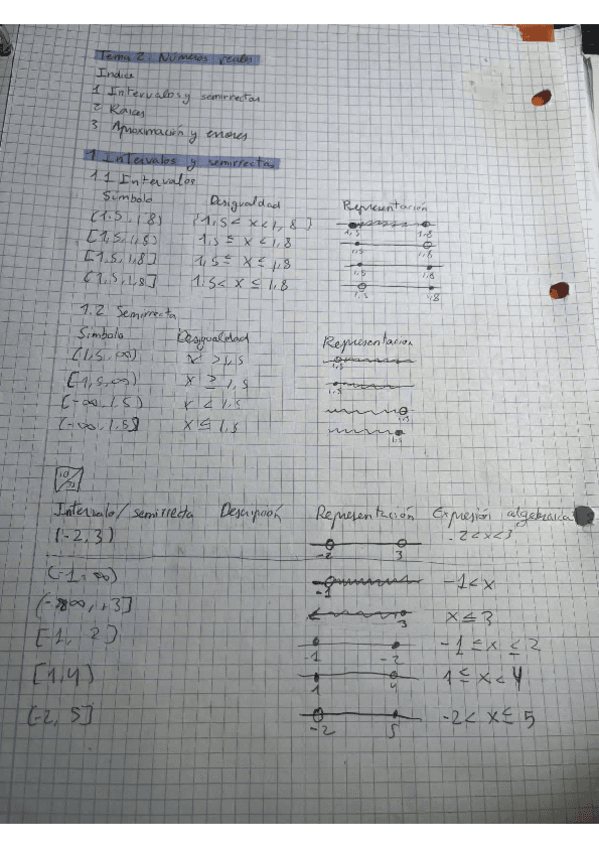 Tema 2: Números reales
Indice
1 Intervalos y semirrectas
2 Raices
3 Aproximación y errores
1 Intervalos y semirrectas
1.1 Intervalos
Simbolo Desigualdad Representación
(1,5, 1,8) {1,5 < x < 1,8} 1,5 1,8
[1,5, 1,8) 1,5 ≤ x < 1,8 1,5 1,8
[1,5, 1,8] 1,5 ≤ x ≤ 1,8 1,5 1,8
(1,5, 1,8] 1,5 < x ≤ 1,8 1,5 1,8
1.2 Semirrecta
Simbolo Desigualdad Representación
(1,5, ∞) x > 1,5 1,5
[1,5, ∞) x ≥ 1,5 1,5
(-∞, 1,5) x < 1,5 1,5
(-∞, 1,5] x ≤ 1,5 1,5
Intervalo/semirrecta Descripción Representación Expresión algebraica
(-2, 3) -2 3 -2 < x < 3
(-1, ∞) -1 -1 < x
+3] 3 x ≤ 3
[1, 2) -1 -2 -1 ≤ x ≤ 2
[1,4) 1 4 1 ≤ x < 4
(-2, 5] -2 5 -2 < x ≤ 5